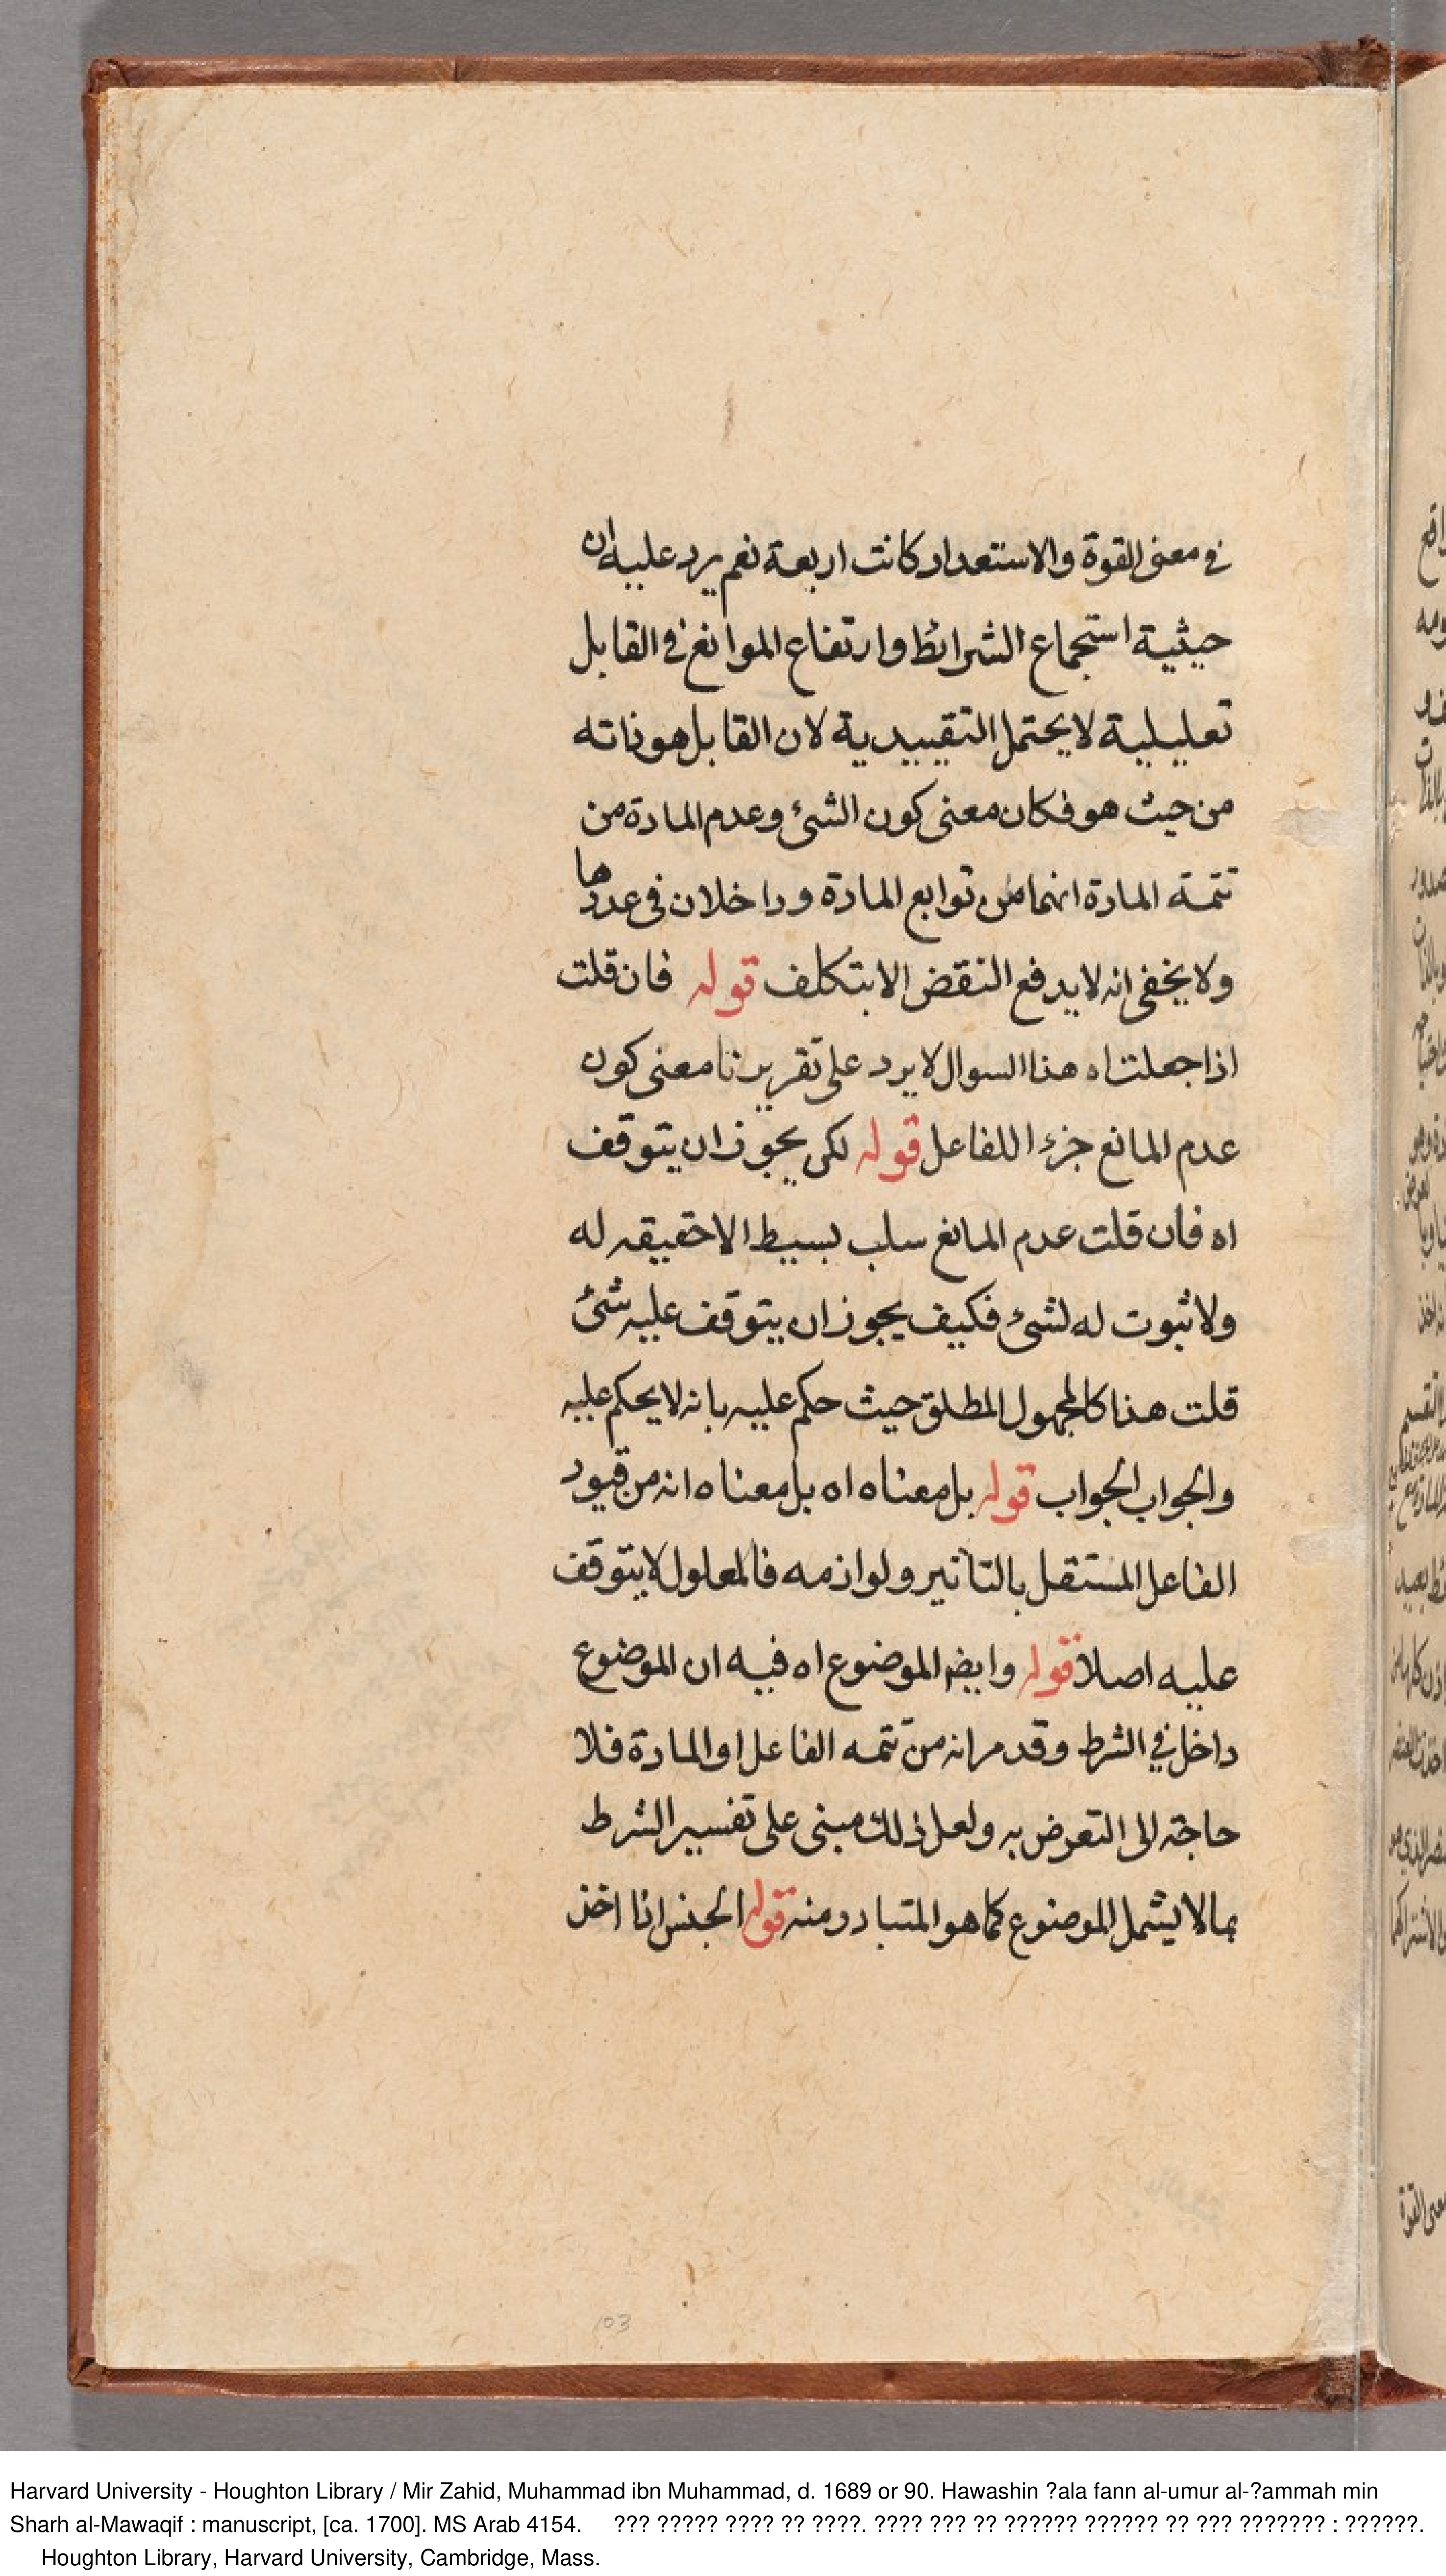 في معنى القوة والاستعداد كانت اربعة نعم يرد عليه ان
حيثية استجماع الشرائط وارتفاع الموانع في القابل
تعليلية لا يحتمل التقييدية لان القابل هو ذاته
من حيث هو فكان معنى كون الشئ وعدم المادة من
تتمة المادة انهما من توابع المادة وداخلان في عددها
ولا يخفى انه لا يدفع النقض الا بتكلف قوله فان قلت
اذا جعلت اه هذا السوال لا يرد على تقريرنا معنى كون
عدم المانع جزء اللفاعل قوله لكن يجوز ان يتوقف
اه فان قلت عدم المانع سلب بسيط لا حقيقه له
ولا ثبوت له لشئ فكيف يجوز ان يتوقف عليه شئ
قلت هذا كالمجهول المطلق حيث حكم عليه بانه لا يحكم عليه
والجواب الجواب قوله بل معناه اه بل معناه انه من قيود
الفاعل المستقل بالتاثير ولوازمه فالمعلول لا يتوقف
عليه اصلا قوله وايضا الموضوع اه فيه ان الموضوع
داخل في الشرط وقد مر انه من تتمه الفاعل او المادة فلا
حاجة الى التعرض به ولعل ذلك مبنى على تفسير الشرط
بما لا يشمل الموضوع كما هو المتبادر منه قوله الجنس اذا اخذ
103
Harvard University - Houghton Library / Mir Zahid, Muhammad ibn Muhammad, d. 1689 or 90. Hawashin ?ala fann al-umur al-?ammah min
Sharh al-Mawaqif : manuscript, [ca. 1700]. MS Arab 4154. ??? ????? ???? ?? ????. ???? ??? ?? ?????? ?????? ?? ??? ??????? : ??????.
Houghton Library, Harvard University, Cambridge, Mass.